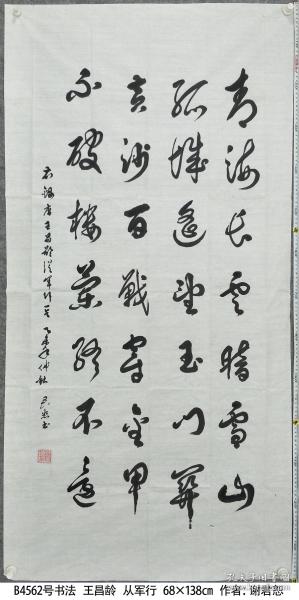 青海长云暗雪山
孤城遥望玉门關
黄沙百戰穿金甲
不破樓蘭终不還
右録唐王昌龄從军行 仲秋 君恕书
B4562号书法 王昌龄 从军行 68×138cm 作者:谢君恕